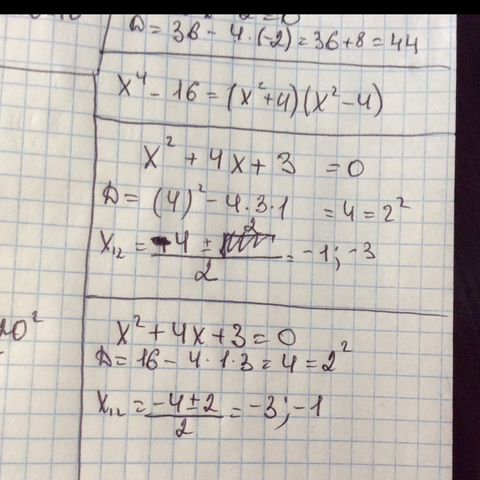 Д = 36 - 4·(-2) = 36 + 8 = 44
x⁴ - 16 = (x² + 4)(x² - 4)
x² + 4x + 3 = 0
Д = (4)² - 4·3·1 = 4 = 2²
x₁₂ = -4 ± 2 / 2 = -1; -3
x² + 4x + 3 = 0
Д = 16 - 4·1·3 = 4 = 2²
x₁₂ = -4 ± 2 / 2 = -3; -1